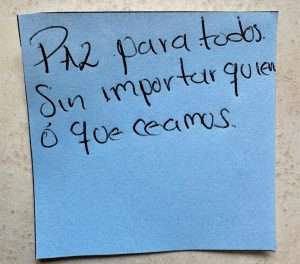 Paz para todos.
Sin importar quien
ó que ceamos.